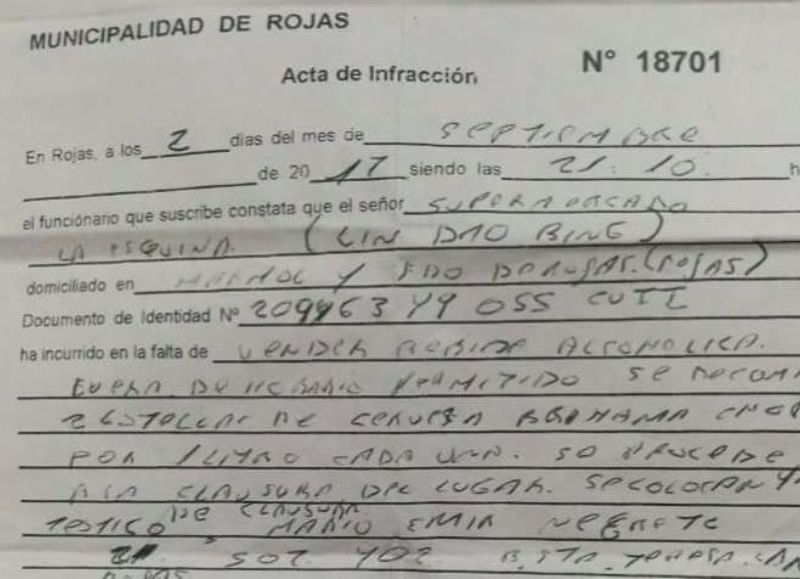 MUNICIPALIDAD DE ROJAS
Acta de Infracción Nº 18701
En Rojas, a los 2 dias del mes de SEPTIEMBRE
de 2017 siendo las 21:10 h
el funcionario que suscribe constata que el señor SUPERMERCADO
LA ESQUINA. (LIN DAO BING)
domiciliado en Y (ROJAS)
Documento de Identidad Nº CUIT
ha incurrido en la falta de VENDER BEBIDA ALCOHOLICA.
FUERA DE HORARIO PERMITIDO SE DECOMI
2 BOTELLAS DE CERVEZA BRAHAMA
POR 1 LITRO CADA UNA. SE PROCEDE
A LA CLAUSURA DEL LUGAR. SE COLOCAN
DE CLAUSURA
TESTIGO MARIO NEGRETE
402 B. STA. TERESA.